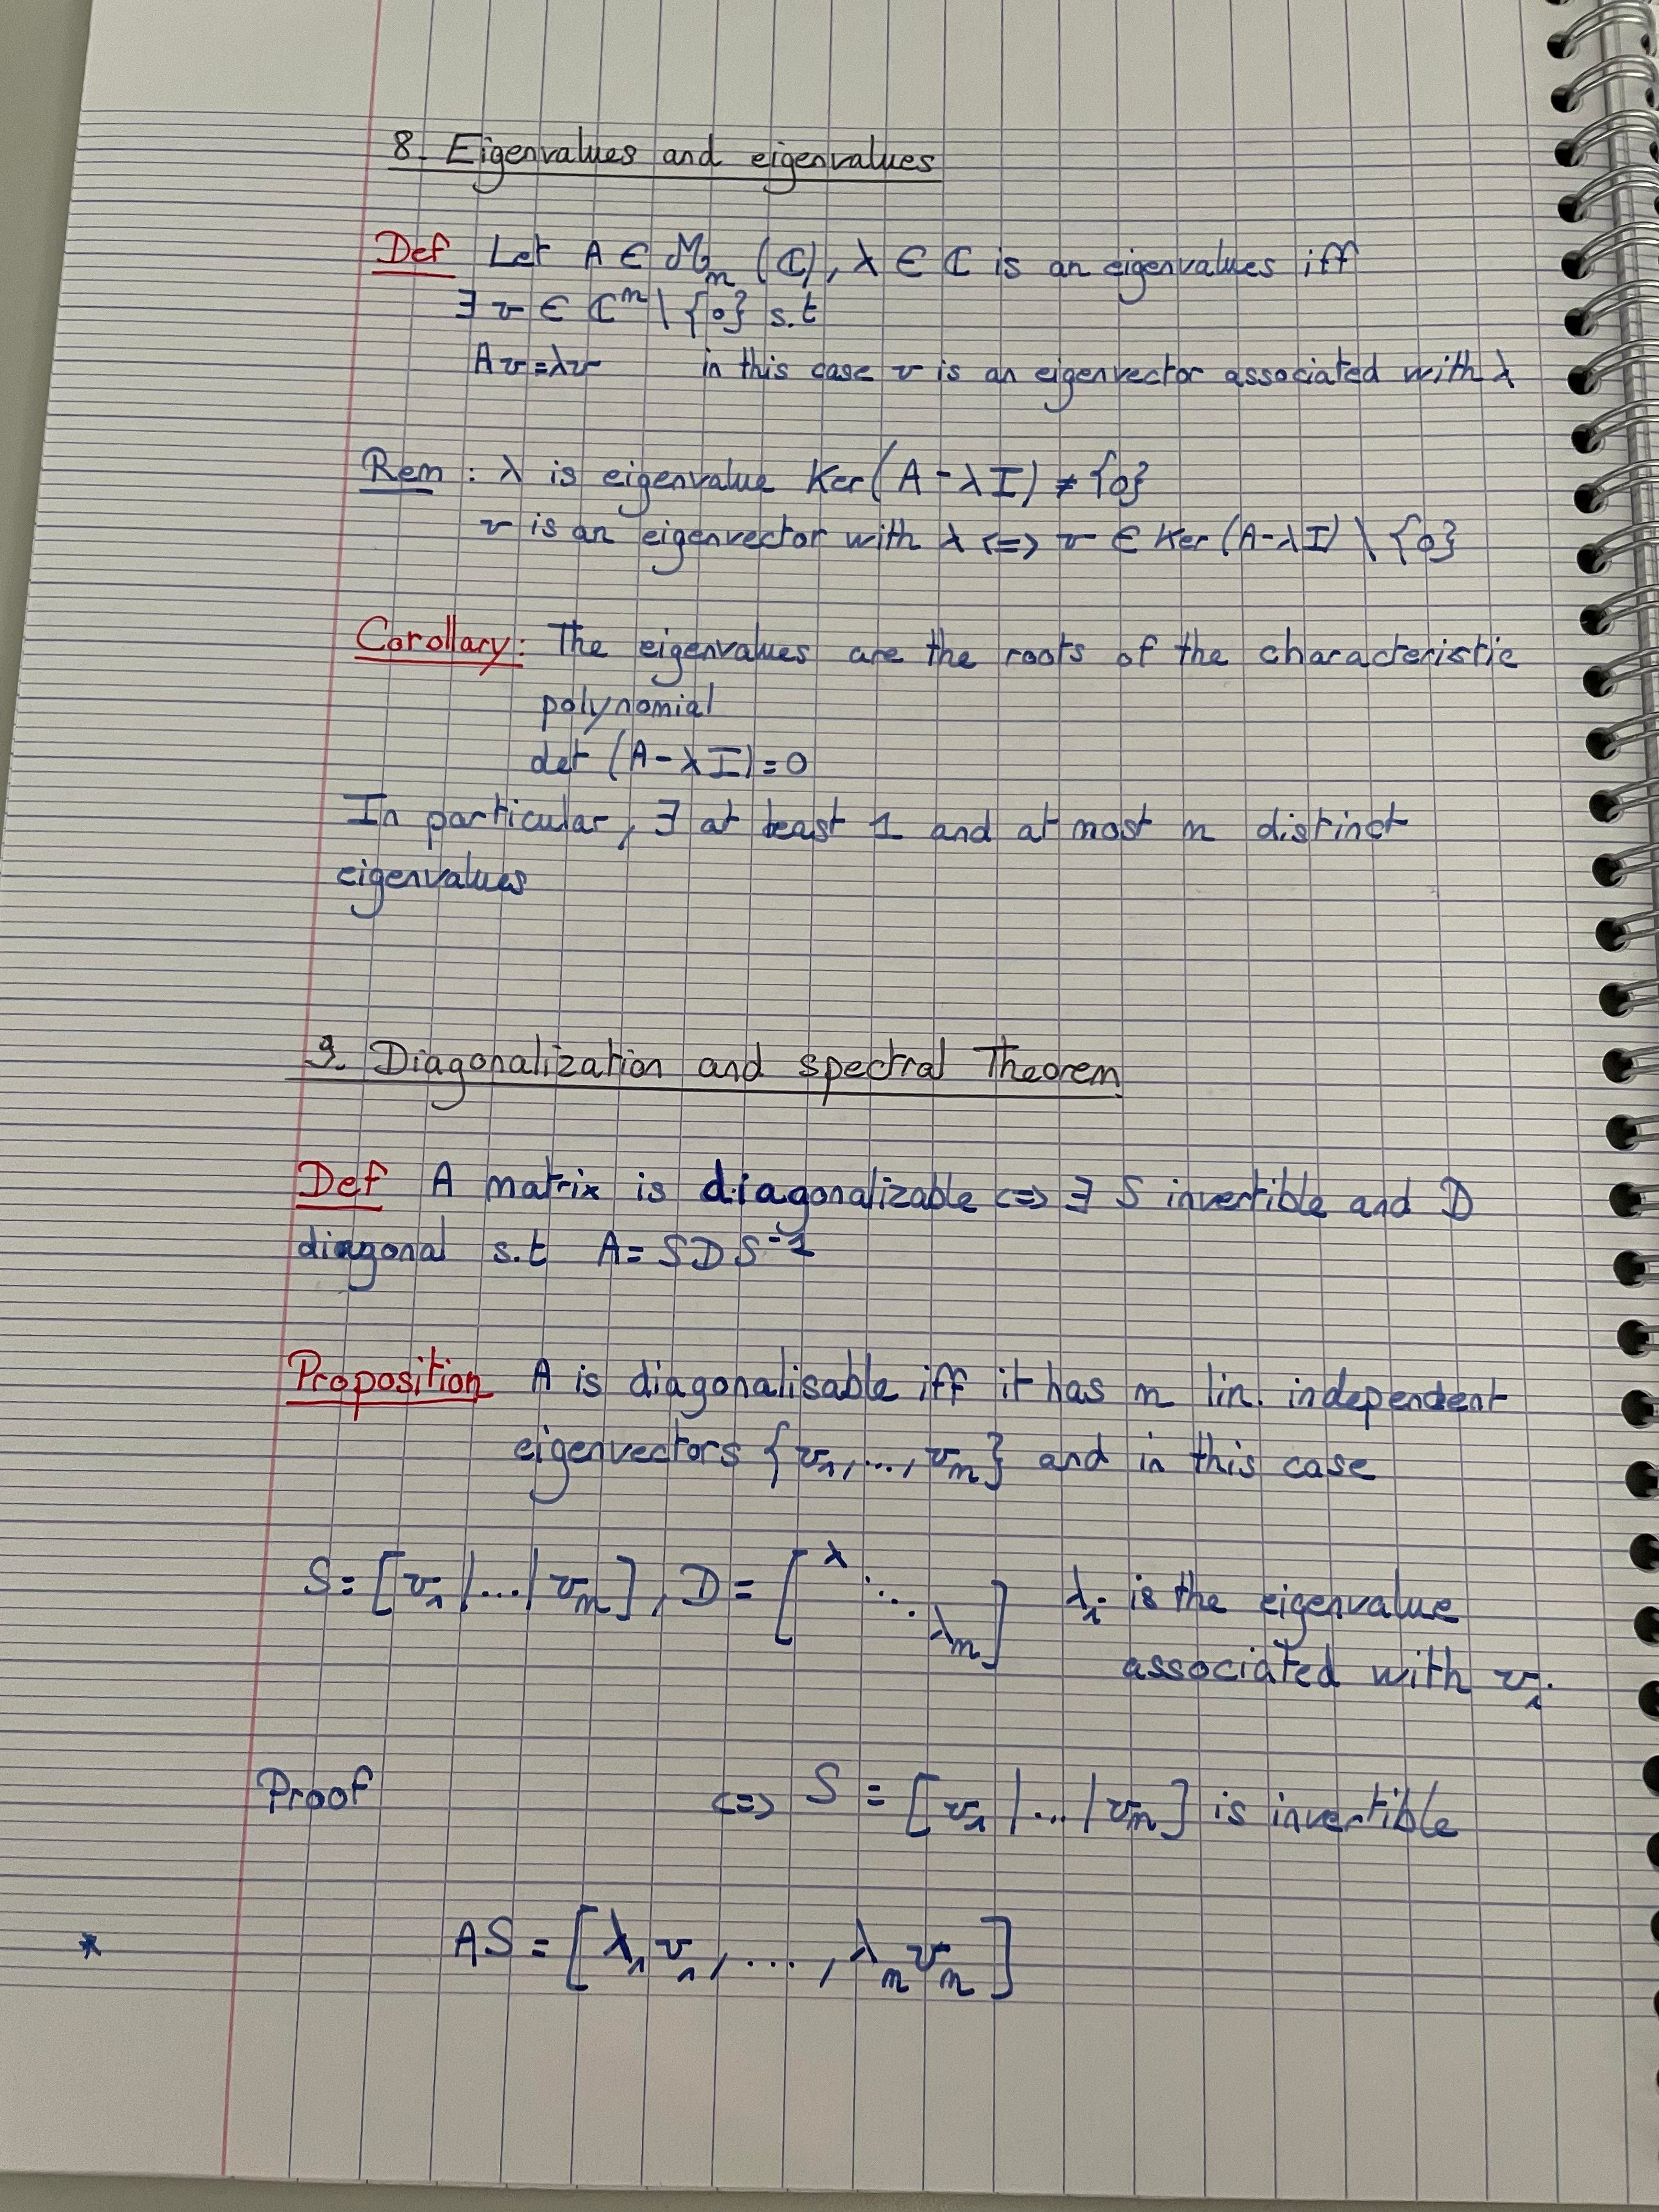 8. Eigenvalues and eigenvalues
Def Let A ∈ M_n (ℂ), λ ∈ ℂ is an eigenvalues iff
∃ v ∈ ℂ^n \ {0} s.t
Av = λv in this case v is an eigenvector associated with λ
Rem : λ is eigenvalue Ker(A - λI) ≠ {0}
v is an eigenvector with λ <=> v ∈ Ker (A-λI) \ {0}
Corollary: The eigenvalues are the roots of the characteristic
polynomial
det (A - λI) = 0
In particular, ∃ at least 1 and at most n distinct
eigenvalues
9. Diagonalization and spectral Theorem
Def A matrix is diagonalizable <=> ∃ S invertible and D
diagonal s.t A = SDS^-1
Proposition A is diagonalisable iff it has n lin. independent
eigenvectors {v_1, ..., v_n} and in this case
S = [v_1 | ... | v_n], D = [λ ⋱ λ_n] λ_i is the eigenvalue
associated with v_i.
Proof <=> S = [v_1 | ... | v_n] is invertible
* AS = [λ_1 v_1, ..., λ_n v_n]